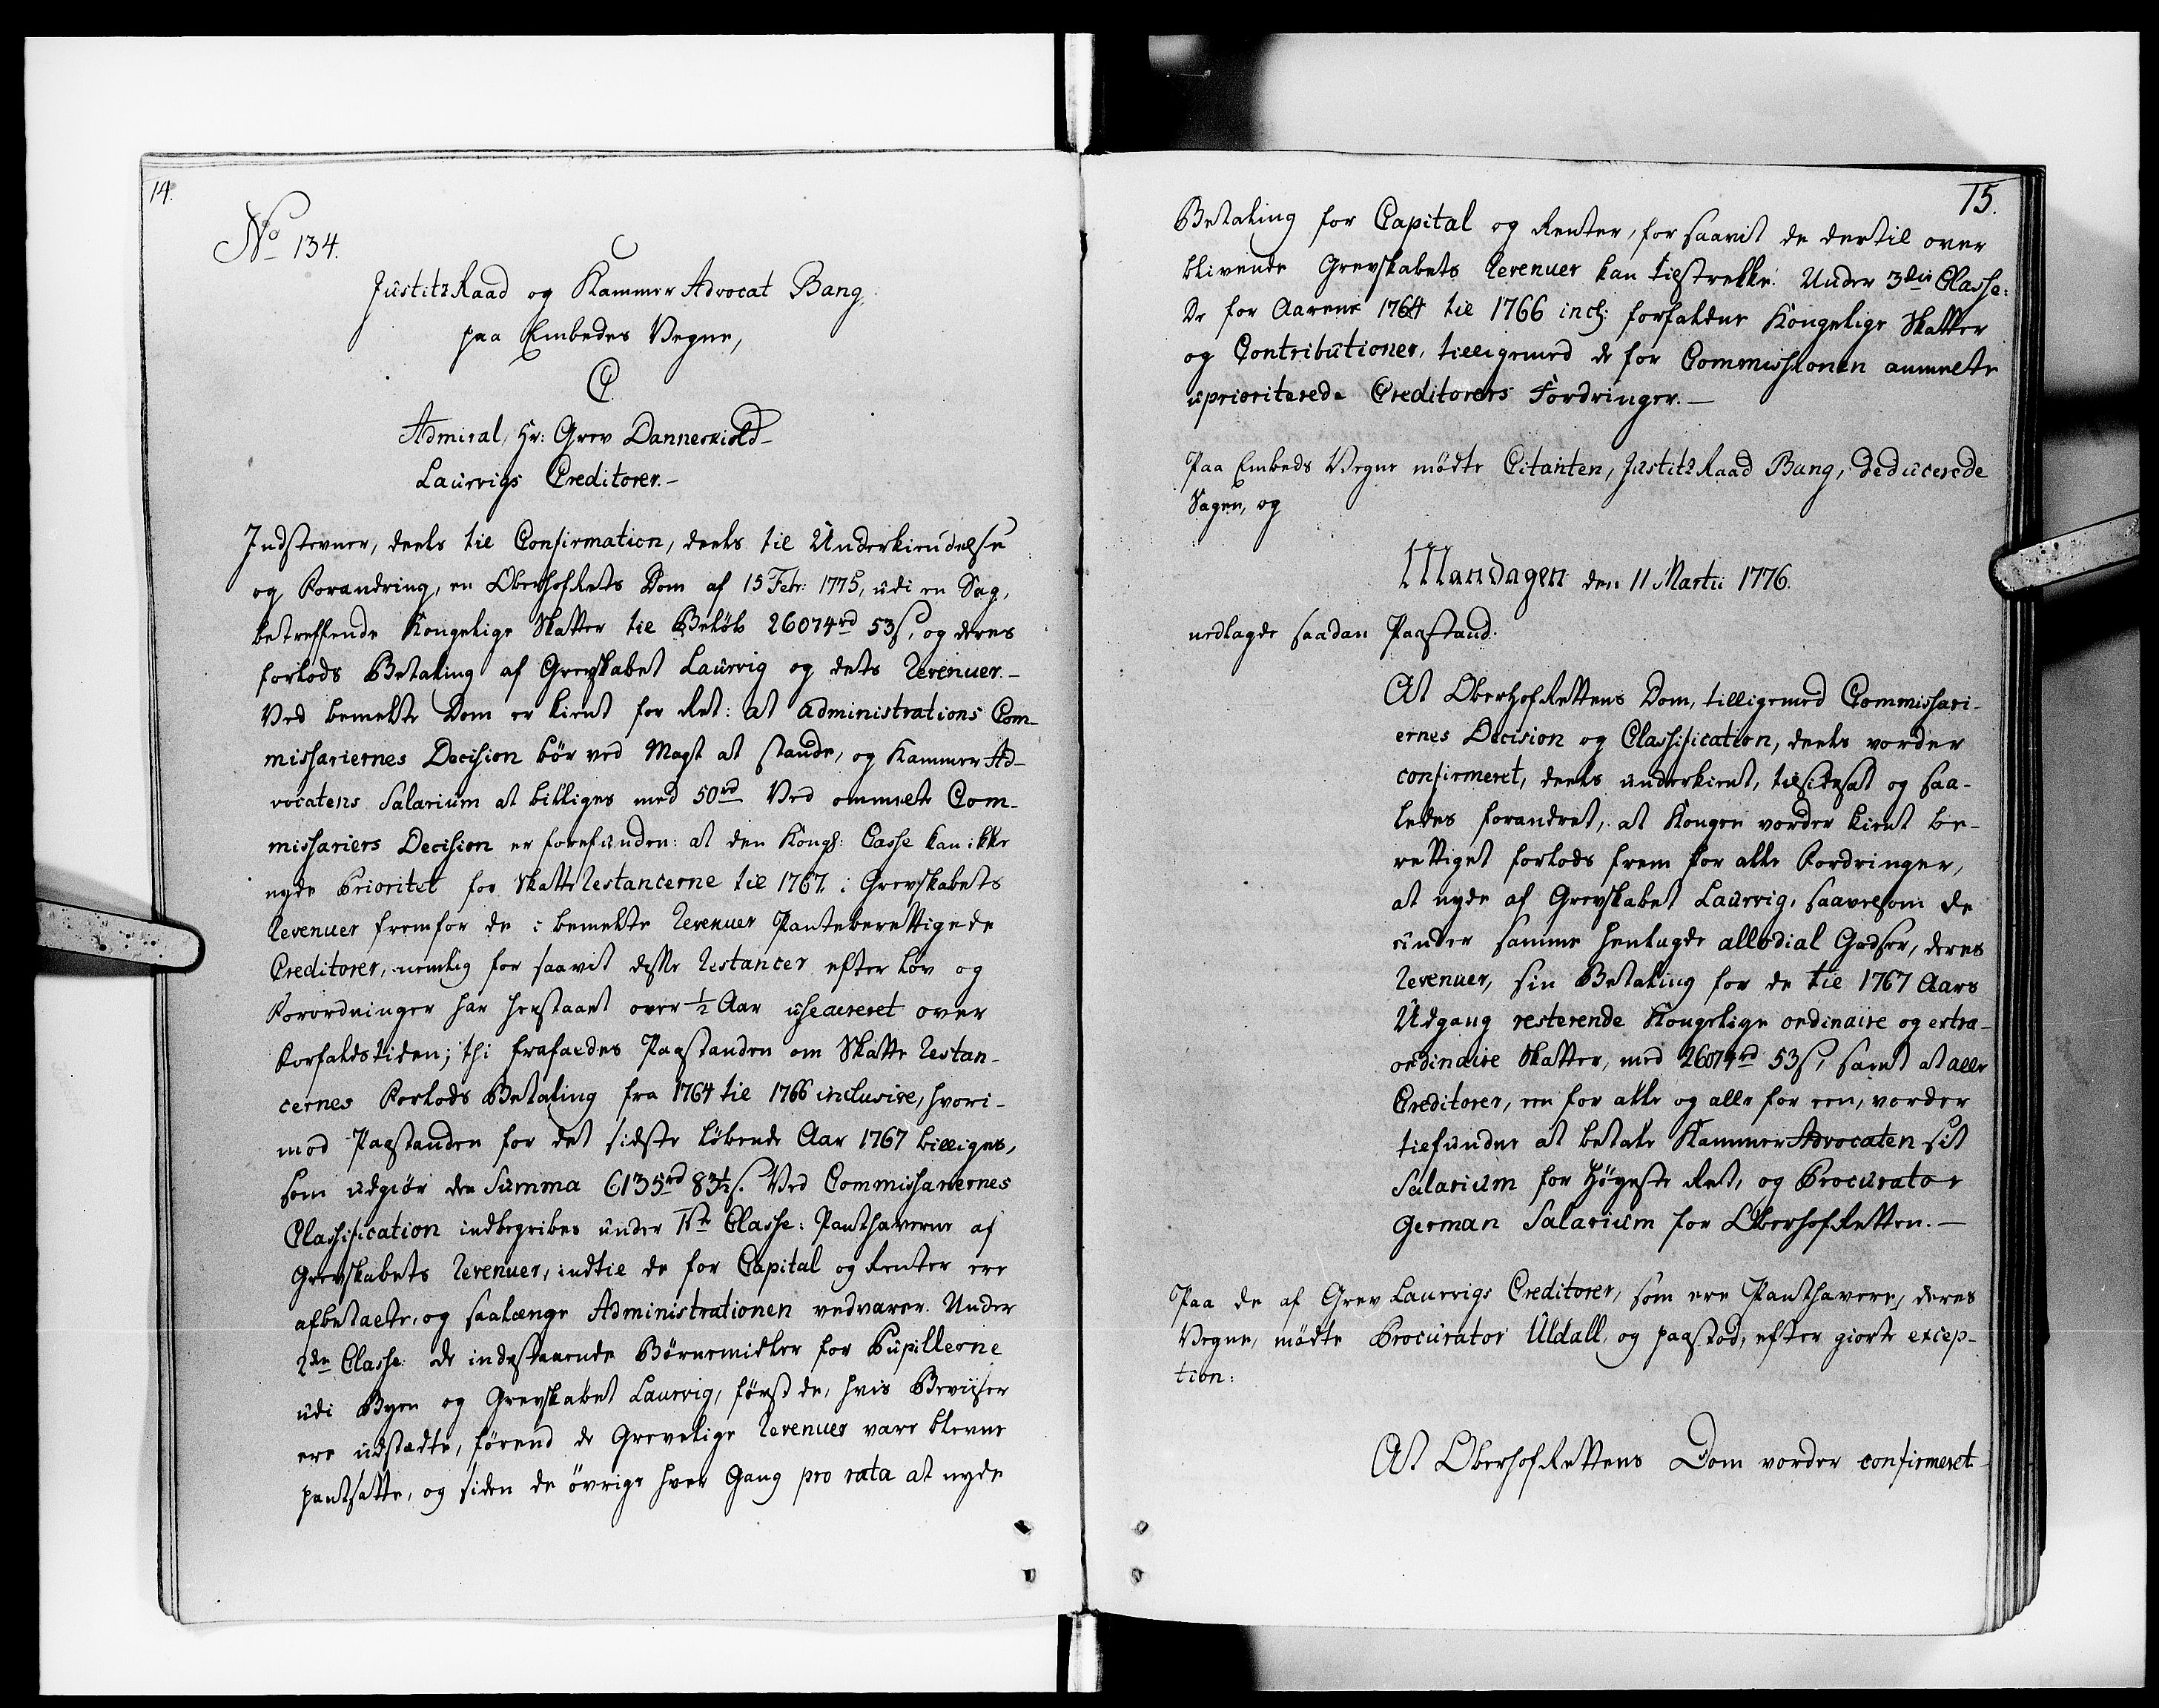 14.
No 134.
Justitz Raad og Kammer Advocat Bang,
paa Embedes Vegne,
C
Admiral, Hr: Grev Danneskiold-
Laurvigs Creditorer.-
Indstevner, deels til Confirmation, deels til Underkiendelse
og Forandring, en OberhofRets Dom af 15 Febr: 1775, udi en Sag,
betreffende Kongelige Skatter til Beløb 26074rd 53s, og deres
forlods Betaling af Grevskabet Laurvig og dets Revenuer.-
Ved bemelte Dom er kient for Ret: at Administrations Com-
missariernes Decision bör ved Magt at stande, og Kammer Ad-
vocatens Salarium at billiges med 50rd Ved ommelte Com-
missariers Decision er forefunden: at den Kongl: Casse kan ikke
nyde Prioritet for Skatte Restancerne til 1767 i Grevskabets
Revenuer fremfor de i bemelte Revenuer Panteberettigede
Creditorer, nemlig for saavit disse Restancer efter Lov og
Forordninger har henstaaet over ½ Aar usecureret over
Forfaldstiden; thi frafaldes Paastanden om Skatte Restan-
cernes Forlods Betaling fra 1764 til 1766 inclusive, hvori-
mod Paastanden for det sidste løbende Aar 1767 billiges,
som udgiör den Summa 6135rd 83½s. Ved Commissariernes
Classification indbegribes under 1ste Classe: Panthaverne af
Grevskabets Revenuer, indtil de for Capital og Renter ere
afbetalte, og saalænge Administrationen vedvarer. Under
2den Classe: de indestaaende Börnemidler for Pupillerne
udi Byen og Grevskabet Laurvig, först de, hvis Beviiser
ere udstædte, förend de Grevelige Revenuer vare blevne
pantsatte, og siden de övrige hver Gang pro rata at nyde
15.
Betaling for Capital og Renter, for saavit de dertil over
blivende Grevskabets Revenuer kan tilstrekke. Under 3die Classe:
De for Aarene 1764 til 1766 incl: forfaldne Kongelige Skatter
og Contributioner, tilligemed de for Commissionen anmelte
uprioriterede Creditorers Fordringer.-
Paa Embeds Vegne mödte Citanten, Justitz Raad Bang, deducerede
Sagen, og
Mandagen den 11 Martii 1776.
nedlagde saadan Paastand:
At OberhofRettens Dom, tilligemed Commissari-
ernes Decision og Classification, deels vorder
confirmeret, deels underkient, tilsidesat og saa-
ledes forandret, at Kongen vorder kient be-
rettiget forlods frem for alle Fordringer,
at nyde af Grevskabet Laurvig, saavelsom de
under samme henlagde allodial Godser, deres
Revenuer, sin Betaling for de til 1767 Aars
Udgang resterende Kongelige ordinaire og extra-
ordinaire Skatter, med 26074rd 53s, samt at alle
Creditorer, een for alle og alle for een, vorder
tilfundne at betale Kammer Advocaten sit
Salarium for Höyeste Ret, og Procurator
German Salarium for OberhofRetten.-
Paa de af Grev Laurvigs Creditorer, som ere Panthavere, deres
Vegne, mödte Procurator Uldall, og paastod, efter giorte excep-
tion:
At OberhofRettens Dom vorder confirmeret.